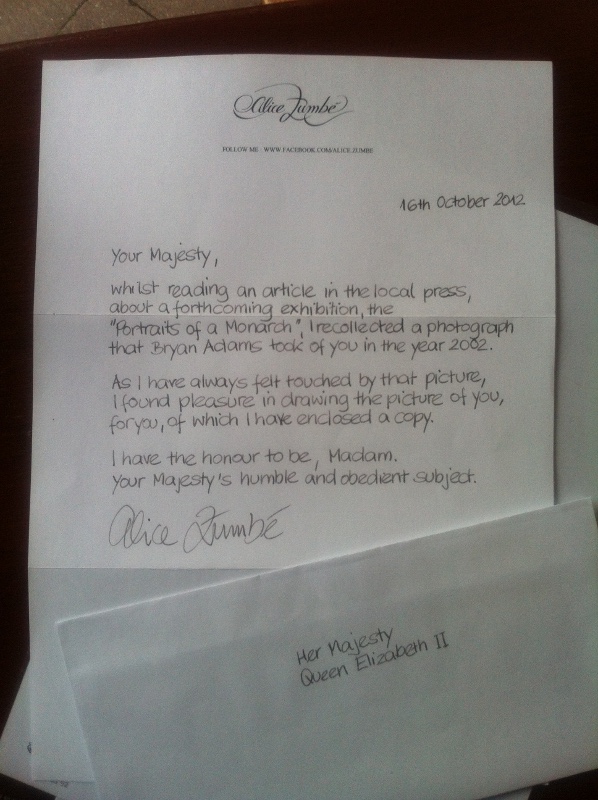 Alice Zumbé
FOLLOW ME - WWW.FACEBOOK.COM/ALICE.ZUMBE
16th October 2012
Your Majesty,
whilst reading an article in the local press,
about a forthcoming exhibition, the
"Portraits of a Monarch", I recollected a photograph
that Bryan Adams took of you in the year 2002.
As I have always felt touched by that picture,
I found pleasure in drawing the picture of you,
for you, of which I have enclosed a copy.
I have the honour to be, Madam.
Your Majesty's humble and obedient subject.
Alice Zumbé
Her Majesty
Queen Elizabeth II